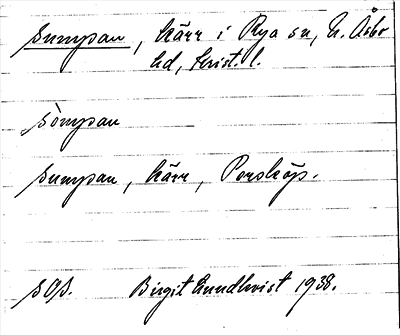 sumpan, kärr i Rya sn, N. Åsbo
hd, Krist. l.
sòmpan
sumpan, kärr, Porsköp.
s Ођ. Birgit Lundkvist 1938.